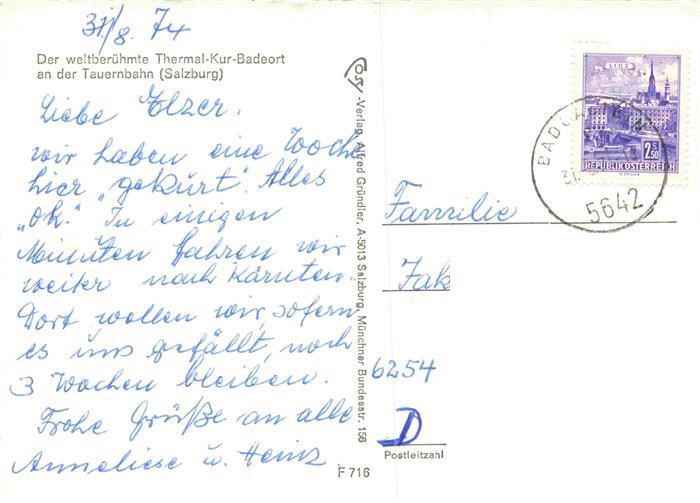 31/8. 74
Der weltberühmte Thermal-Kur-Badeort
an der Tauernbahn (Salzburg)
Liebe Elzer.
wir haben eine Woche
hier „gekurt". Alles
„ok." In einigen
Minuten fahren wir
weiter nach Kärnten.
Dort wollen wir, sofern
es uns gefällt, noch
3 Wochen bleiben.
Frohe Grüße an alle
Anneliese u. Heinz.
-Verlag Alfred Gründler, A-5013 Salzburg, Münchner Bundesstr. 156
F 716
LINZ
2 S 50
REPUBLIK ÖSTERREICH
5642
Familie
Jak
6254
D
Postleitzahl